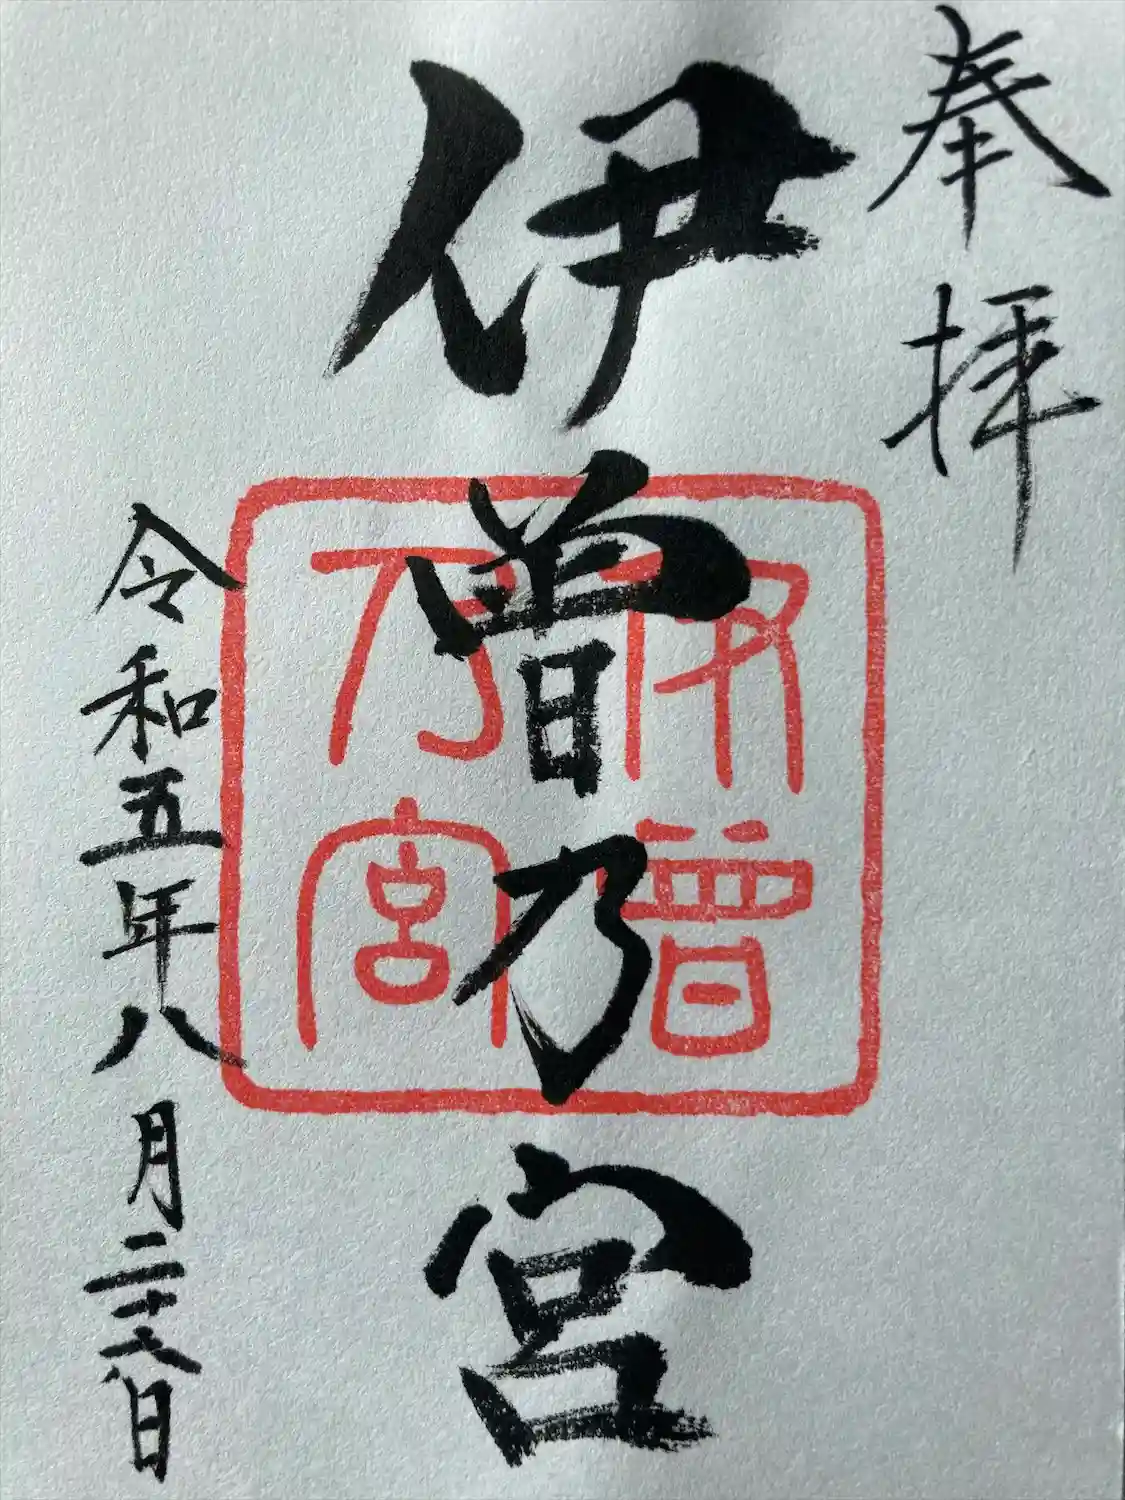 奉拝
伊曽乃宮
令和五年八月二十六日
伊曽
乃宮